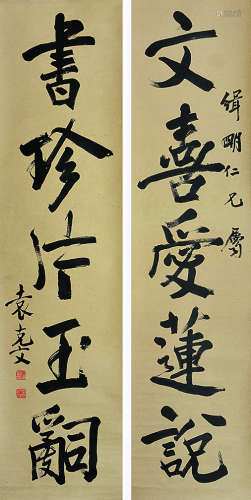 緝明仁兄屬
文喜愛蓮說
書珍片玉嗣
袁克文